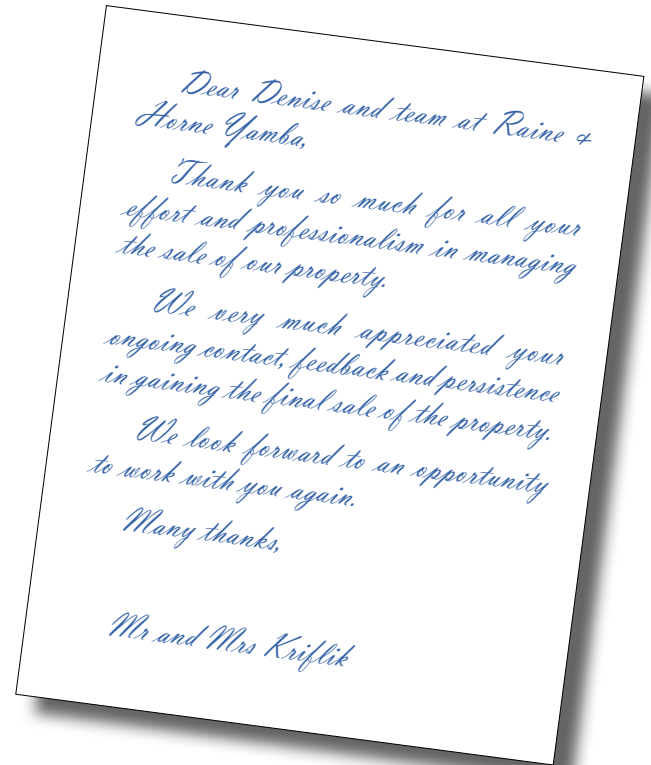 Dear Denise and team at Raine &
Horne Yamba,
Thank you so much for all your
effort and professionalism in managing
the sale of our property.
We very much appreciated your
ongoing contact, feedback and persistence
in gaining the final sale of the property.
We look forward to an opportunity
to work with you again.
Many thanks,
Mr and Mrs Kriflik